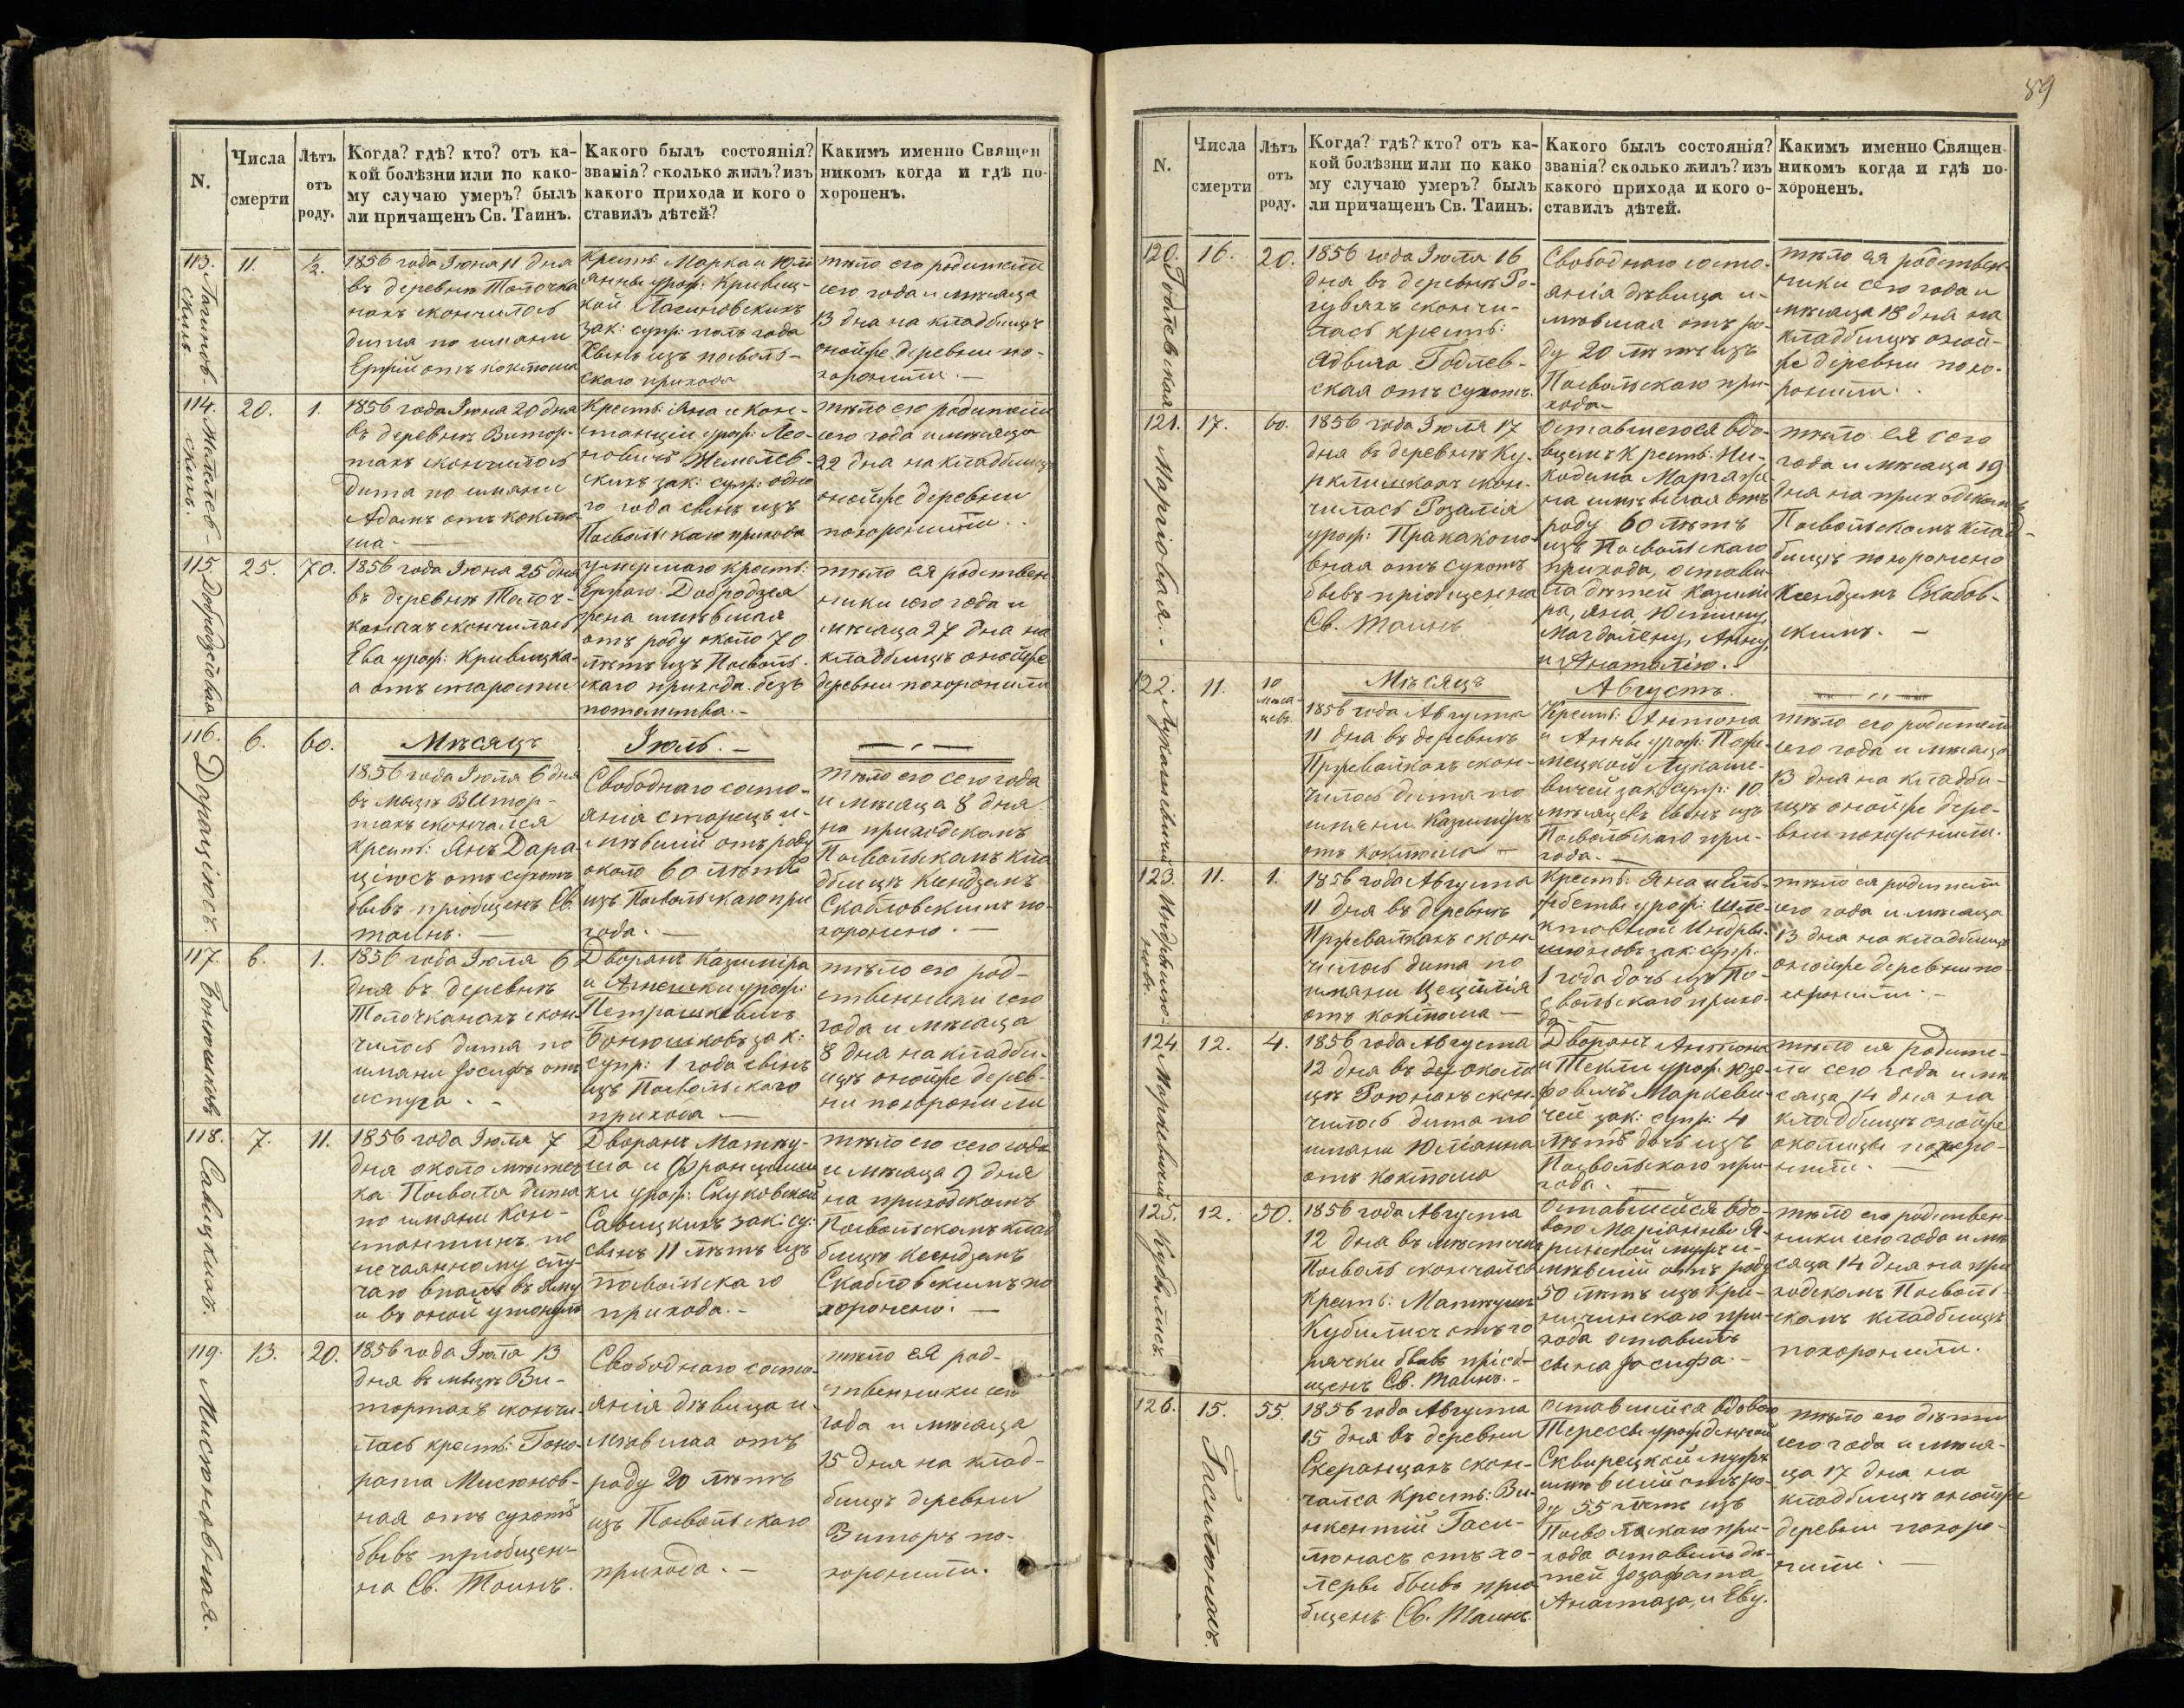 89
N.
Числа
смерти
Лѣтъ
отъ
роду.
Когда? гдѣ? кто? отъ ка-
кой болѣзни или по како-
му случаю умеръ? былъ
ли причащенъ Св. Таинъ.
Какого былъ состоянія?
званія? сколько жилъ? изъ
какого прихода и кого о
ставилъ дѣтей?
Какимъ именно Священ
никомъ когда и гдѣ по-
хороненъ.
113.
11.
½.
1856 года Іюня 11 дня
въ деревнѣ Толочка
нахъ скончилось
дитя по имяни
отъ коклюша
Крест: Марка и Юлі
анны урож: Кривиц-
кой
зак: супр: полъ года
сынъ изъ посволь-
скаго прихода
тѣло его родители
сего года и мѣсяца
13 дня на кладбищѣ
онойже деревни по-
хоронили. —
114.
20.
1.
1856 года Іюня 20 дня
въ деревнѣ Витор-
тахъ скончилось
дитя по имяни
Адамъ отъ коклю-
ша. —
Крест: Яна и Кон-
станціи урож: Лео-
новичъ Жемелев-
скихъ зак: супр: одно
го года сынъ изъ
Посвольскаго прихода
тѣло его родители
сего года и мѣсяца
22 дня на кладбищѣ
онойже деревни
похоронили.
115.
25.
70.
1856 года Іюня 25 дня
въ деревнѣ Толоч-
канахъ скончилась
Ева урож: Кривицка-
я отъ старости
умершаго крест:
Добродзея
жена имѣвшая
отъ роду около 70
лѣтъ изъ Посволь-
скаго прихода безъ
потомства. —
тѣло ея родствен-
ники сего года и
мѣсяца 27 дня на
кладбищѣ онойже
деревни похоронили
116.
Дараціюсъ.
6.
60.
Мѣсяцъ
Іюль. —
1856 года Іюля 6 дня
въ мызѣ Витор-
тахъ скончался
крест: Янъ Дара-
ціюсъ отъ сухотъ
бывъ пріобщенъ Св.
таинъ. —
Свободнаго состо-
янія старецъ и-
мѣвшій отъ роду
около 60 лѣтъ
изъ Посвольскаго при
хода. —
тѣло его сего года
и мѣсяца 8 дня
на приходскомъ
Посвольскомъ кла
дбищѣ Ксендземъ
Скабловскимъ по-
хоронено. —
117.
Бонюшковъ
6.
1.
1856 года Іюля 6
дня въ деревнѣ
Толочканахъ скон-
чилось дитя по
имяни Іосифъ отъ
испуга. —
Дворянъ Казиміра
и Агнешки урож:
Петрашкевичъ
Бонюшковъ зак:
супр: 1 года сынъ
изъ Посвольскаго
прихода —
тѣло его род-
ственники сего
года и мѣсяца
8 дня на кладби-
щѣ онойже дерев-
ни похоронили
118.
Савицкихъ.
7.
11.
1856 года Іюля 7
дня около мѣстеч
ка Посволя дитя
по имяни Кон-
стантинъ по
нечаянному слу-
чаю впалъ въ яму
и въ оной утонулъ
Дворянъ Матеу-
ша и Францишки
урож: Скуковской
Савицкихъ зак: су:
сынъ 11 лѣтъ изъ
посвольскаго
прихода. —
тѣло его сего года
и мѣсяца 9 дня
на приходскомъ
Посвольскомъ клад
бищѣ Ксендземъ
Скабловскимъ по
хоронено. —
119.
Мисюновная.
13.
20.
1856 года Іюля 13
дня въ мызѣ Ви-
тортахъ скончи-
лась крест: Гоно-
рата Мисюнов-
ная отъ сухотъ
бывъ пріобщен-
на Св. Таинъ.
Свободнаго состо-
янія дѣвица и-
мѣвшая отъ
роду 20 лѣтъ
изъ Посвольскаго
прихода. —
тѣло ея род-
ственники сего
года и мѣсяца
15 дня на клад-
бищѣ деревни
Виторъ по-
хоронили.
N.
Числа
смерти
Лѣтъ
отъ
роду.
Когда? гдѣ? кто? отъ ка-
кой болѣзни или по како
му случаю умеръ? былъ
ли причащенъ Св. Таинъ.
Какого былъ состоянія?
званія? сколько жилъ? изъ
какого прихода и кого о-
ставилъ дѣтей.
Какимъ именно Священ-
никомъ когда и гдѣ по-
хороненъ.
120.
Годлевская
16.
20.
1856 года Іюля 16
дня въ деревнѣ
скончи-
лась крест:
Ядвига Годлев-
ская отъ сухотъ.
Свободнаго состо-
янія дѣвица и-
мѣвшая отъ ро-
ду 20 лѣтъ изъ
Посвольскаго при-
хода —
тѣло ея родствен-
ники сего года и
мѣсяца 18 дня на
кладбищѣ оной-
же деревни похо-
ронили.
121.
17.
60.
1856 года Іюля 17
дня въ деревнѣ Ку-
скон-
чилась Розалія
урож:
отъ сухотъ
бывъ пріобщенна
Св. Таинъ
Оставшегося вдо-
вцемъ Крест: Ни-
кодима
жена имѣвшая отъ
роду 60 лѣтъ
изъ Посвольскаго
прихода, остави-
ла дѣтей Казими
ра, Яна, Юстину,
Магдалену, Анну,
и Анатолію.
тѣло ея сего
года и мѣсяца 19
дня на приходскомъ
Посвольскомъ клад-
бищѣ похоронено
Ксендземъ Скабов-
скимъ. —
122.
Лукашевичей
11.
10
мѣся-
цевъ.
Мѣсяцъ
Августъ.
1856 года Августа
11 дня въ деревнѣ
Пржевалкахъ скон-
чилось дитя по
имяни Казиміръ
отъ коклюша —
Крест: Антона
и Анны урож:
Лукаше-
вичей зак: супр: 10
мѣсяцевъ сынъ изъ
Посвольскаго при-
хода. —
тѣло его родители
сего года и мѣсяца
13 дня на кладби-
щѣ онойже дере-
вни похоронили.
123.
11.
1.
1856 года Августа
11 дня въ деревнѣ
Пржевалкахъ скон-
чилось дитя по
имяни Цецилія
отъ коклюша —
Крест: Яна и Ель-
жбеты урож:
зак: супр:
1 года дочь изъ По-
свольскаго прихо-
да —
тѣло ея родители
сего года и мѣсяца
13 дня на кладбищѣ
онойже деревни по-
хоронили. —
124.
Маркевичей
12.
4.
1856 года Августа
12 дня въ околи
цѣ скон-
чилось дитя по
имяни Юліанна
отъ коклюша
Дворянъ Антона
и Текли урож: Юзе-
фовичъ Маркеви-
чей зак: супр: 4
лѣтъ дочь изъ
Посвольскаго при-
хода. —
тѣло ея родите-
ли сего года и мѣ
сяца 14 дня на
кладбищѣ онойже
околицы похоро-
нили. —
125.
Кубилисъ.
12.
50.
1856 года Августа
12 дня въ мѣстечкѣ
Посволь скончался
Крест: Матеушъ
Кубилисъ отъ го
рячки бывъ пріоб-
щенъ Св. Таинъ. —
Оставшейся вдо-
вою Маріанны
мужъ и-
мѣвшій отъ роду
50 лѣтъ изъ Кри-
ничинскаго при-
хода оставилъ
сына Іосифа. —
тѣло его родствен-
ники сего года и мѣ
сяца 14 дня на при
ходскомъ Посволь-
скомъ кладбищѣ
похоронили.
126.
Гасилюнасъ.
15.
55.
1856 года Августа
15 дня въ деревни
скон-
чался Крест: Ви-
нкентій Гаси-
люнасъ отъ хо-
леры бывъ прио
бщенъ Св. Таинъ.
Оставшейся вдовою
Терессы урожденной
Сквирецкой мужъ
имѣвшій отъ ро-
ду 55 лѣтъ изъ
Посвольскаго при-
хода оставилъ дѣ-
тей Іозафата
и Еву.
тѣло его дѣти
сего года и мѣся-
ца 17 дня на
кладбищѣ онойже
деревни похоро-
нили. —